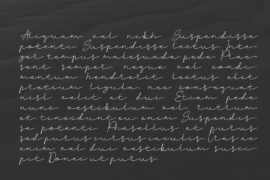 Aliquam vel nibh. Suspendisse
potenti. Suspendisse lectus. Inte-
ger tempus malesuada pede. Prae-
sent semper neque vel condi-
mentum hendrerit. lectus elit
pratium ligula, nec consequat
nisl velit at dui. Etiam pede
nunc vestibulum vel rutrum
et, tincidunt eu enim. Suspendis-
se potenti. Phasellus at purus
sed purus cursus iaculis. Cras ac
enim vel dui vestibulum susci-
pit. Donec ut purus.